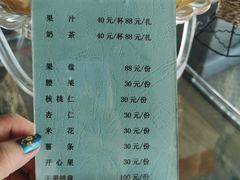 果汁 40元/杯 88元/扎
奶茶 40元/杯 88元/扎
果盘 88元/份
腰果 30元/份
核桃仁 30元/份
杏仁 30元/份
米花 30元/份
薯条 30元/份
开心果 30元/份
干果拼盘 100元/份